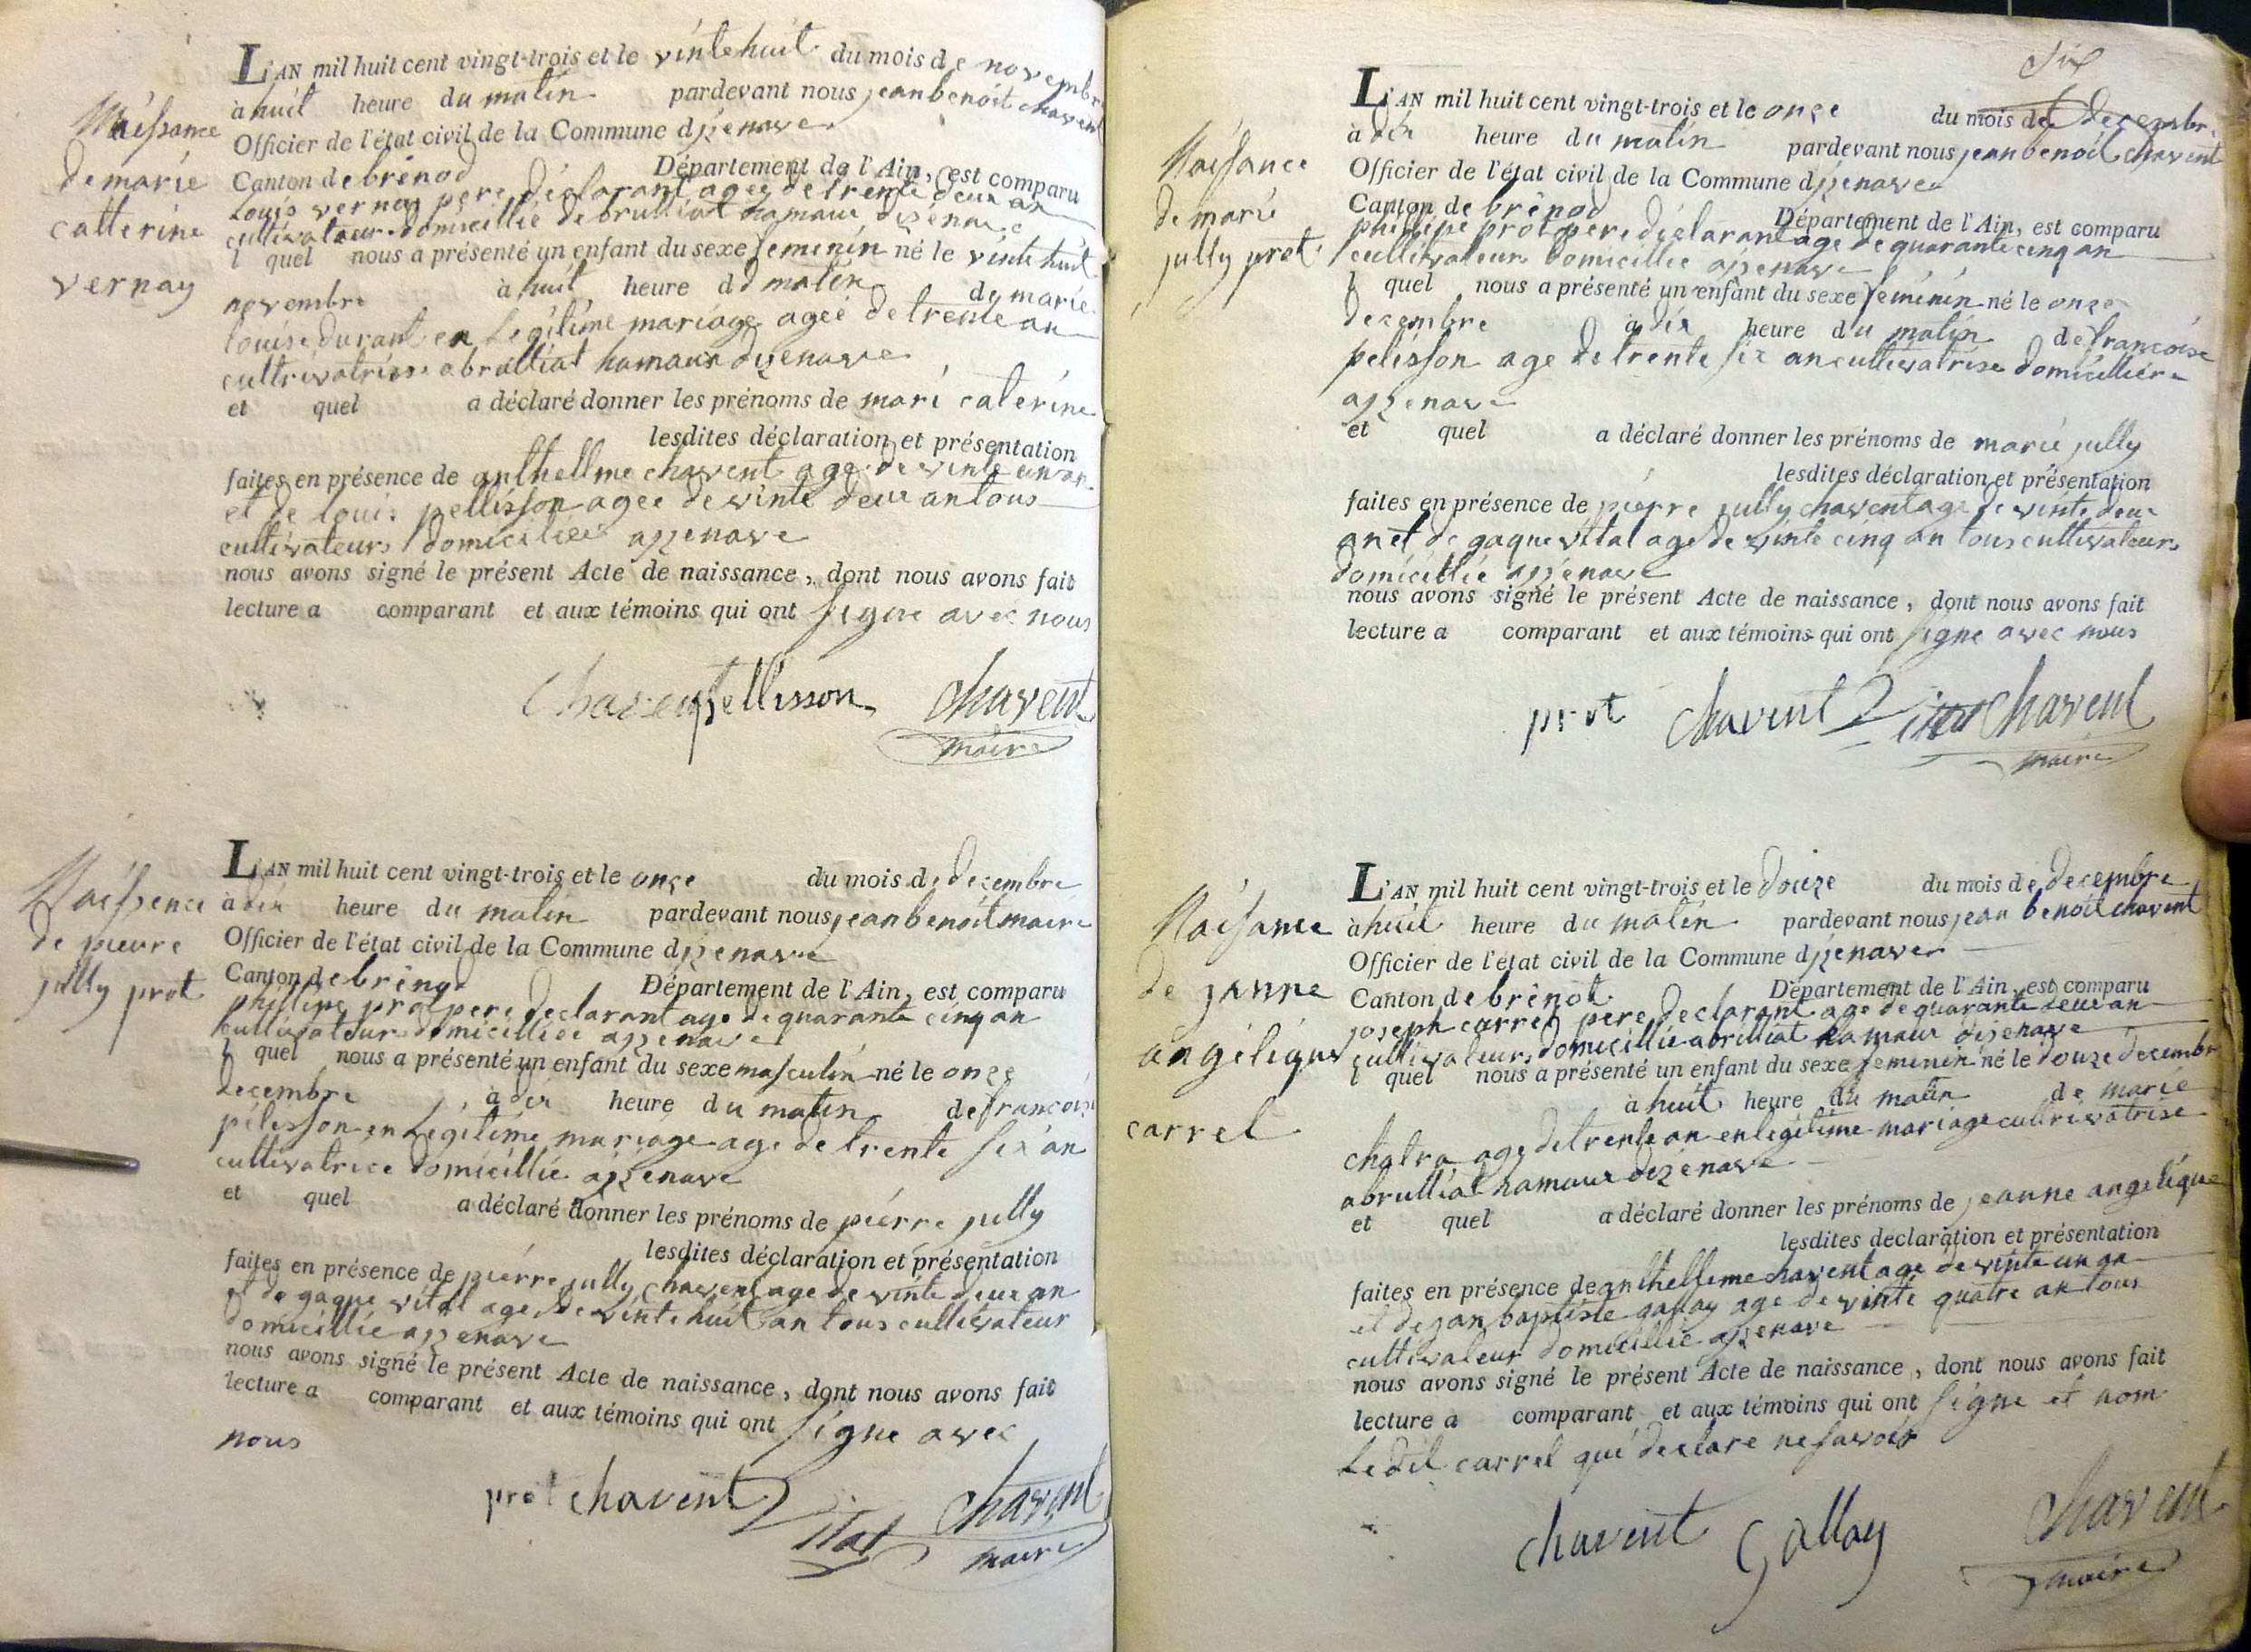 Naissance
de marie
catterine
vernay
L'AN mil huit cent vingt-trois et le vinte huit du mois de novembre
à huit heure du matin pardevant nous jean benoit chavent
Officier de l'état civil de la Commune dizenave
Canton de brénod Département de l'Ain, est comparu
Louis vernay pere déclarant agée de trente deux an
cultivateur domicillié de brulliat hamaux dizenave
l quel nous a présenté un enfant du sexe femenin né le vinte huit
novembre à huit heure du matin de marie
louise durant en Legitime mariage agée de trente an
cultrivatrise a brulliat hamaux dizenave
et quel a déclaré donner les prénoms de mari caterine
lesdites déclaration et présentation
faites en présence de anthellme chavent age de vinte un an
et de louis pellisson agee de vinte deux an tous
cultivateurs domiciliée a izenave
nous avons signé le présent Acte de naissance, dont nous avons fait
lecture a comparant et aux témoins qui ont signe avec nous
Chavent pellisson chavent
maire
Naissence
de pierre
jully prot
L'AN mil huit cent vingt-trois et le onze du mois de decembre
à dix heure du matin pardevant nous jean benoit maire
Officier de l'état civil de la Commune dizenave
Canton de brénod Département de l'Ain, est comparu
phillipe prot pere declarant age de quarante cinq an
cultivateur domicilliée a izenave
l quel nous a présenté un enfant du sexe masculin né le onze
decembre à dix heure du matin de francoise
pélisson en Légitime mariage age de trente six an
cultivatrice domicillié a izenave
et quel a déclaré donner les prénoms de pierre jully
lesdites déclaration et présentation
faites en présence de pierre jully chavent age de vinte deux an
et de gaque vital age de vinte huit an tous cultivateur
domicillie a izenave
nous avons signé le présent Acte de naissance, dont nous avons fait
lecture a comparant et aux témoins qui ont signe avec
nous
prot chavent Vital chavent
maire
six
Naissance
de marie
jully prot
L'AN mil huit cent vingt-trois et le onze du mois de decembre
à dix heure du matin pardevant nous jean benoit chavent
Officier de l'état civil de la Commune dizenave
Canton de brénod Département de l'Ain, est comparu
philipe prot pere déclarant age de quarante cinq an
cultivateur domicillie a izenave
l quel nous a présenté un enfant du sexe feminin né le onze
decembre à dix heure du matin de francoise
pelisson age de trente six an cultivatrise domicilliére
a izenave
et quel a déclaré donner les prénoms de marie jully
lesdites déclaration et présentation
faites en présence de pierre jully chavent age de vinte deux
an et de gaque vital age de vinte cinq an tous cultivateurs
domicillie a izenave
nous avons signé le présent Acte de naissance, dont nous avons fait
lecture a comparant et aux témoins qui ont signe avec nous
prot chavent chavent
maire
Naisance
de janne
angélique
carrel
L'AN mil huit cent vingt-trois et le douze du mois de decembre
à huit heure du matin pardevant nous jean benoit chavent
Officier de l'état civil de la Commune dizenave
Canton de brénod Département de l'Ain, est comparu
joseph carrel pere declarant age de quarante deux an
cultivateur domicillié a brulliat hamaux dizenave
l quel nous a présenté un enfant du sexe femenin né le douze decembre
à huit heure du matin de marie
chatra age de trente an en legitime mariage cultrivatrise
a brulliat hamaux dizenave
et quel a déclaré donner les prénoms de jeanne angelique
lesdites déclaration et présentation
faites en présence de anthelleme chavent age de vinte un an
et de jan baptiste gallay age de vinte quatre an tous
cultivateur domicillie a izenave
nous avons signé le présent Acte de naissance, dont nous avons fait
lecture a comparant et aux témoins qui ont signe et nom
Ledit carrel qui declare ne savoir
chavent Gallay chavent
maire